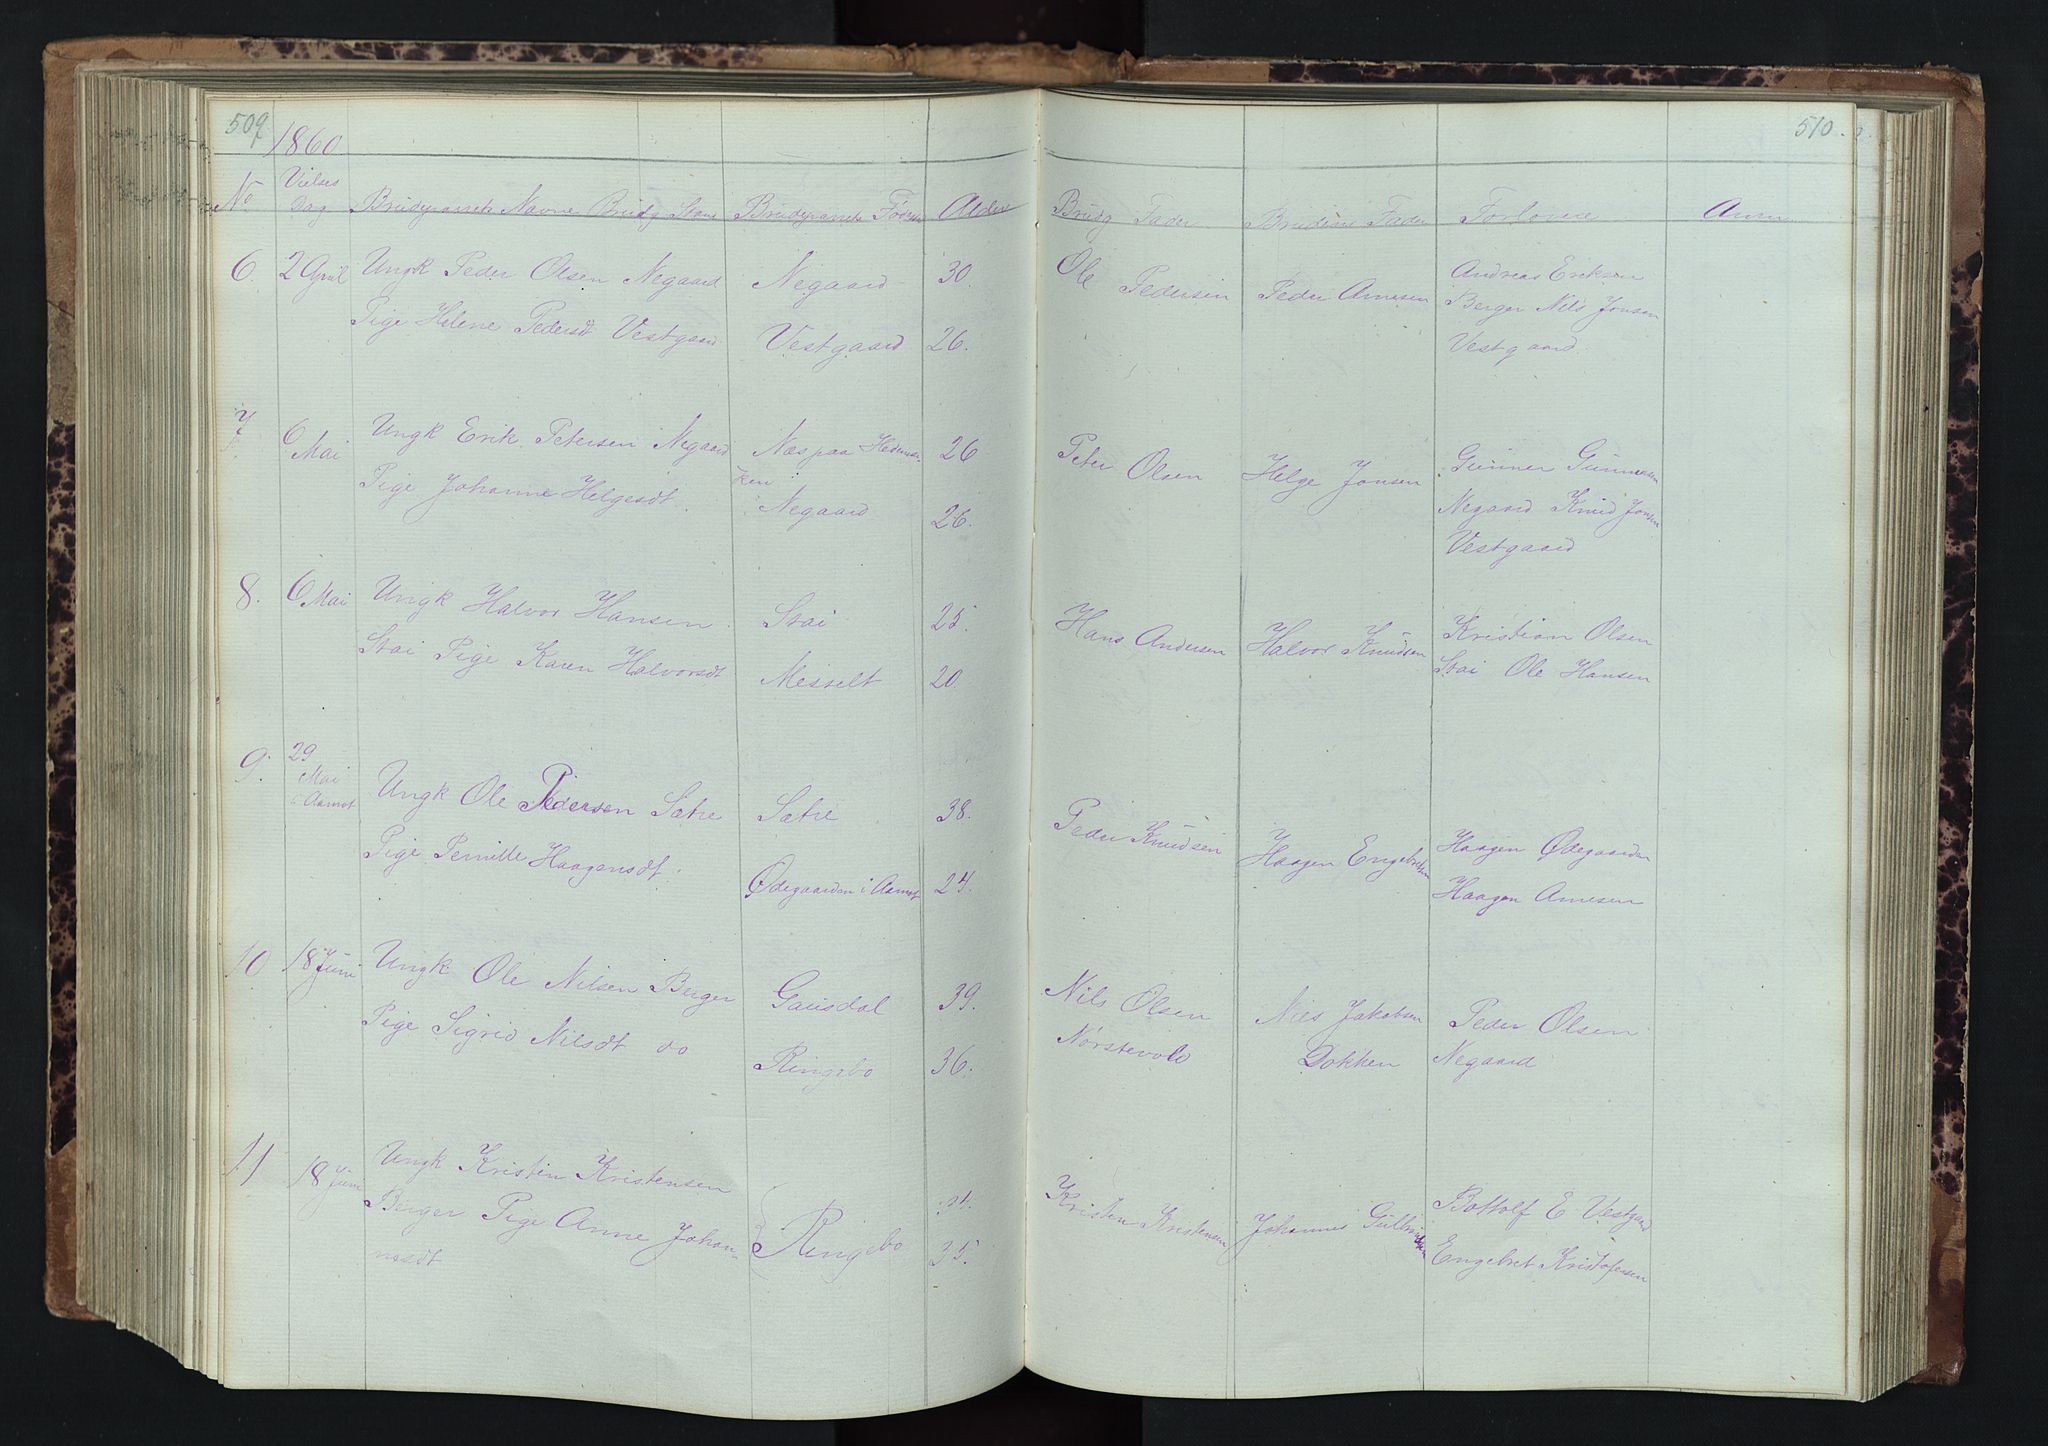 509
1860
No Vielses Dag Brudeparrets Navne Brudg Stan Brudeparrets Fødest Alder
6. 2 April Ungk Peder Olsen Negaard Negaard 30.
Pige Helene Pedersdt Vestgaard Vestgaard 26.
7. 6 Mai Ungk Erik Petersen Negaard Næs paa Hedemar
ken 26
Pige Johanne Helgesdt. Negaard 26.
8. 6 Mai Ungk Halvor Hansen Stai 25.
Stai Pige Karen Halvorsdt Messelt 20.
9. 29 Mai i Aamot Ungk Ole Pedersen Sætre Sætre 38.
Pige Pernille Haagensdt. Ødegaarden i Aamot 24.
10 18 Juni Ungk Ole Nilsen Berger Gausdal 39.
Pige Sigrid Nilsdt do Ringebo 36.
11 18 Juni Ungk Kristen Kristensen
Berger Pige Anne Johan- Ringebo 35.
nesdt
510.
Brudg Fader Brudens Fader Forlovere Anm
Ole Pedersen Peder Arnesen Andreas Eriksen
Berger Nils Jonsen
Vestgaard
Peter Olsen Helge Jonsen Gunner Gunnersen
Negaard Knud Jonsen
Vestgaard
Hans Andersen Halvor Knudsen Kristian Olsen
Stai Ole Hansen
Peder Knudsen Haagen Engebretsen Haagen Ødegaarden
Haagen Arnesen
Nils Olsen Nils Jakobsen Peder Olsen
Nørstevold Dokken Negaard
Kristen Kristensen Johannes Gulbrandsen Bottolf E Vestgaard
Engebret Kristofersen